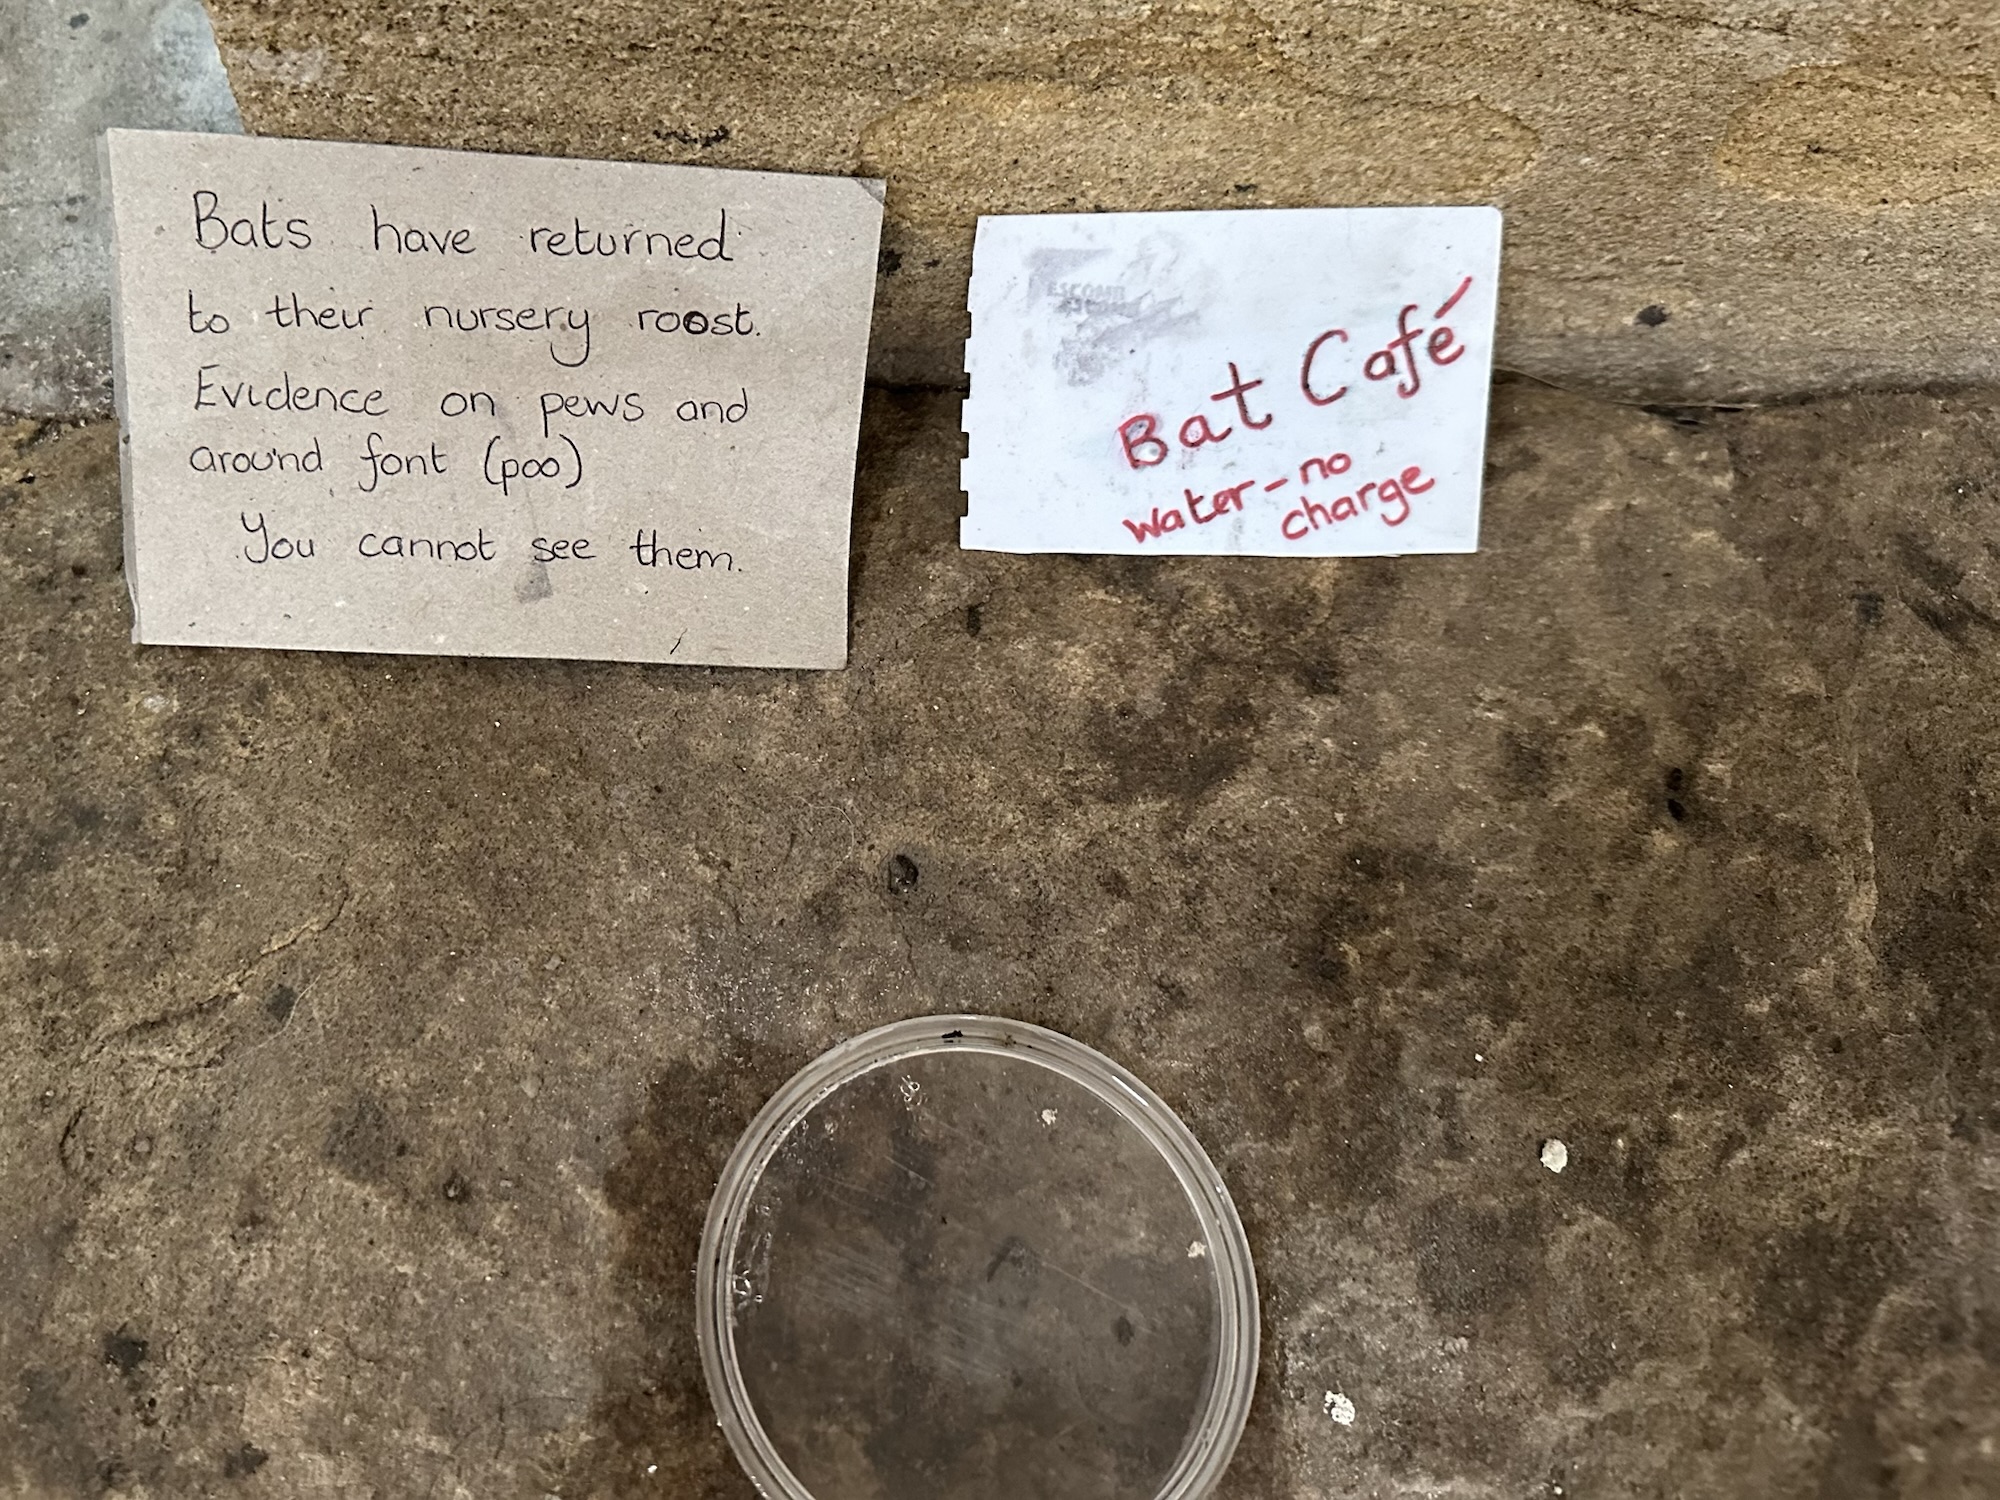 Bats have returned
to their nursery roost.
Evidence on pews and
around font (poo)
You cannot see them.
ESCOMB
Bat Café
water - no
charge